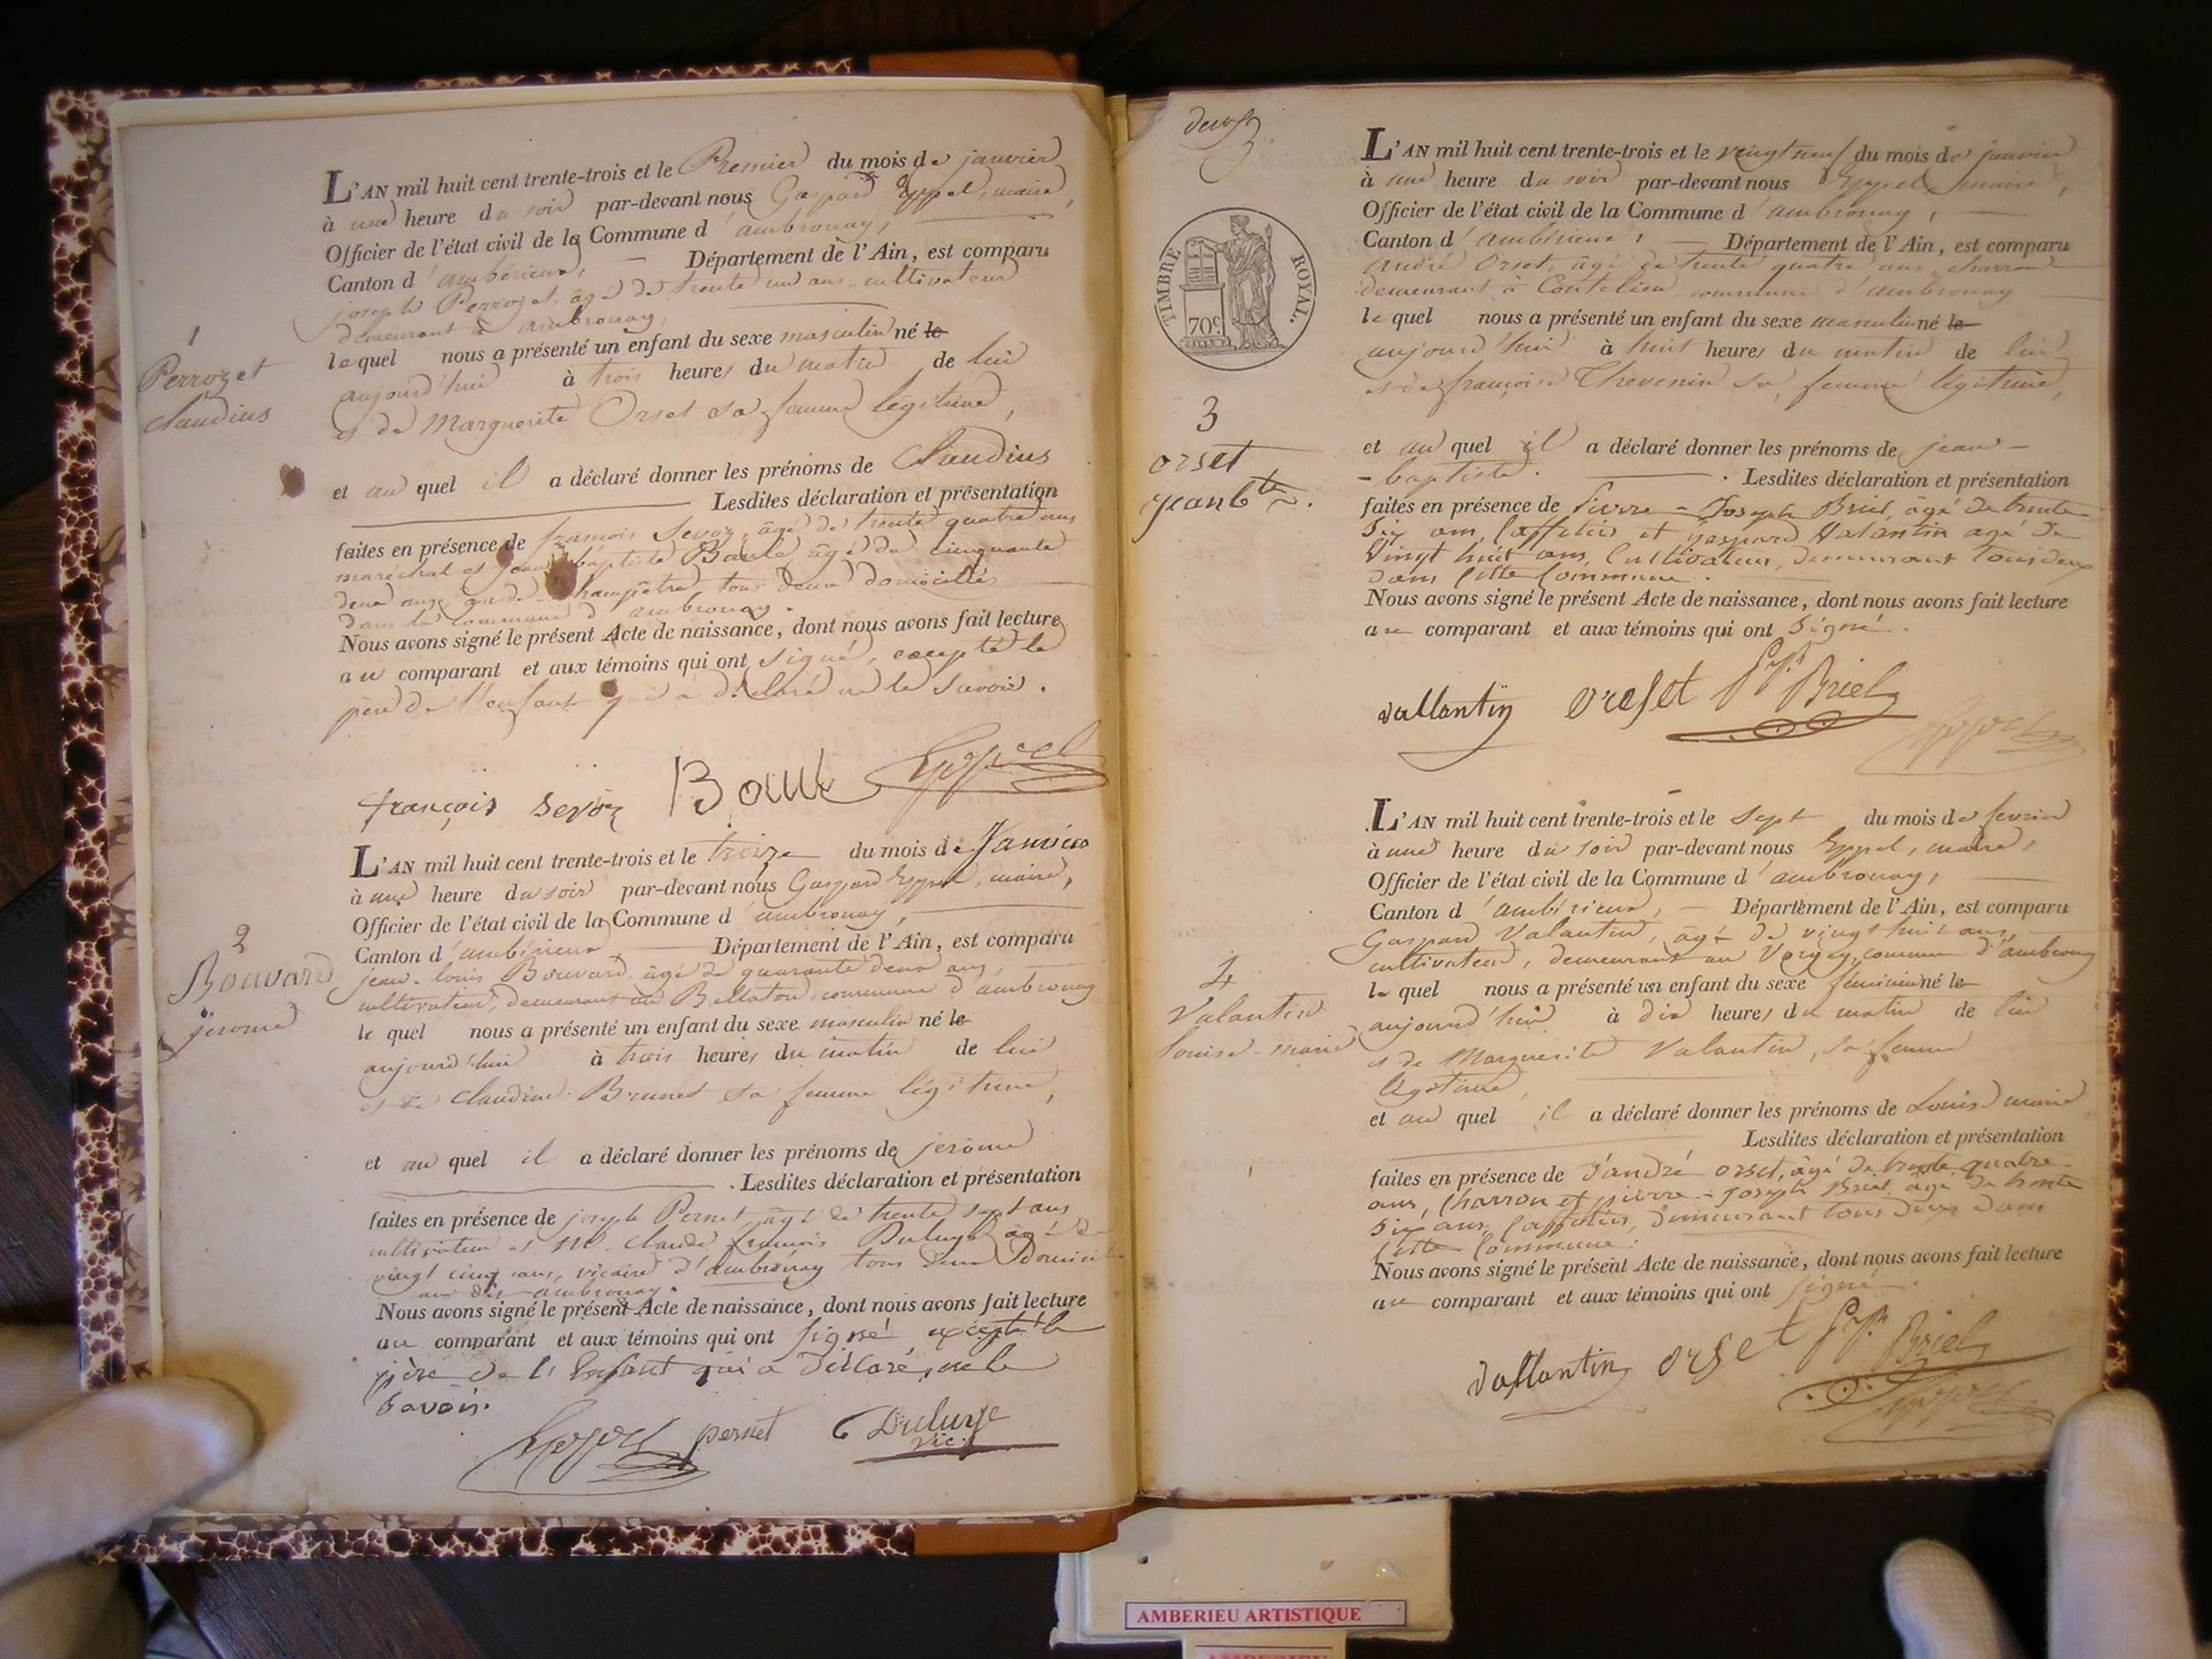 1
Perrozet
Claudius
L'AN mil huit cent trente-trois et le Premier du mois de janvier
à une heure du soir par-devant nous Gaspard Eyppel, maire,
Officier de l'état civil de la Commune d'ambronay,
Canton d'ambérieux, Département de l'Ain, est comparu
joseph Perrozet, âgé de trente un ans, cultivateur
demeurant à ambronay,
lequel nous a présenté un enfant du sexe masculin né le
aujourd'hui à trois heures du matin de lui
et de Marguerite Orset sa femme légitime,
et au quel il a déclaré donner les prénoms de Claudius
Lesdites déclaration et présentation
faites en présence de françois Sevoz, âgé de trente quatre ans
maréchal et jean baptiste Baule âgé de cinquante
deux ans, garde-champêtre, tous deux domiciliés
dans la commune d'ambronay.
Nous avons signé le présent Acte de naissance, dont nous avons fait lecture
au comparant et aux témoins qui ont signé, excepté le
père de l'enfant qui a déclaré ne le savoir.
françois sevoz Baule
2
Bouvard
jerome
L'AN mil huit cent trente-trois et le treize du mois de Janvier
à une heure du soir par-devant nous Gaspard Eyppel, maire,
Officier de l'état civil de la Commune d'ambronay,
Canton d'ambérieux Département de l'Ain, est comparu
jean-louis Bouvard, âgé de quarante deux ans,
cultivateur, demeurant au Bellaton, commune d'ambronay
le quel nous a présenté un enfant du sexe masculin né le
aujourd'hui à trois heures du matin de lui
et de Claudine Brunet sa femme légitime,
et au quel il a déclaré donner les prénoms de jerome
Lesdites déclaration et présentation
faites en présence de joseph Pernet, âgé de trente sept ans
cultivateur et Mr. Claude françois âgé de
vingt cinq ans, vicaire d'ambronay tous deux
ambronay.
Nous avons signé le présent Acte de naissance, dont nous avons fait lecture
au comparant et aux témoins qui ont signé, excepté le
père de l'Enfant qui a déclaré ne le
savoir.
pernet
vic.
TIMBRE ROYAL.
70c
3
orset
jean bte.
L'AN mil huit cent trente-trois et le vingt neuf du mois de janvier
à une heure du soir par-devant nous Eyppel, maire,
Officier de l'état civil de la Commune d'ambronay,
Canton d'ambérieux, Département de l'Ain, est comparu
André Orset, âgé de trente quatre ans charron
demeurant à Coutelieu, commune d'ambronay
le quel nous a présenté un enfant du sexe masculin né le
aujourd'hui à huit heures du matin de lui
et de françoise Thevenin sa femme légitime,
et au quel il a déclaré donner les prénoms de jean-
-baptiste. Lesdites déclaration et présentation
faites en présence de Pierre-Joseph Briel, âgé de trente
six ans, Caffetier et gaspard Valantin agé de
Vingt huit ans, Cultivateur, demeurant tous deux
dans Cette Commune.
Nous avons signé le présent Acte de naissance, dont nous avons fait lecture
au comparant et aux témoins qui ont signé.
vallantin orset Briel
4
Valantin
louise-marie
L'AN mil huit cent trente-trois et le sept du mois de fevrier
à une heure du soir par-devant nous Eyppel, maire,
Officier de l'état civil de la Commune d'ambronay,
Canton d'ambérieux, Département de l'Ain, est comparu
Gaspard Valantin, âgé de vingt huit ans,
cultivateur, demeurant au Vorgey, commune d'ambronay
le quel nous a présenté un enfant du sexe féminin né le
aujourd'hui à dix heures du matin de lui
et de Marguerite Valantin, sa femme
légitime,
et au quel il a déclaré donner les prénoms de Louise marie
Lesdites déclaration et présentation
faites en présence de d'andré orset, âgé de trente quatre
ans, Charron et pierre-joseph Briel âgé de trente
six ans, Caffetier, demeurant tous deux dans
Cette Commune.
Nous avons signé le présent Acte de naissance, dont nous avons fait lecture
au comparant et aux témoins qui ont signé.
vallantin orset Briel
AMBERIEU ARTISTIQUE